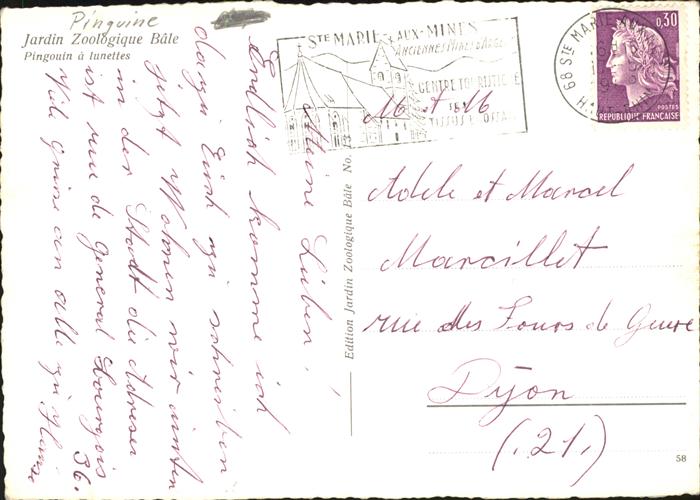 Pinguine
Jardin Zoologique Bâle
Pingouin à lunettes
Meine Lieben!
Endlich komme ich
dazu Euch zu schreiben
jetzt Wohnen wir unten
in der Stadt die Adresse
ist rue de General Bourgois
36.
Viele Grüsse von alle zu
Edition Jardin Zoologique Bâle No.
STE MARIE-AUX-MINES
ANCIENNES MINES D'ARGENT
CENTRE TOURISTIQUE
TISSUS ECOSSAIS
68 STE MARIE AUX MINES
0,30
POSTES
REPUBLIQUE FRANÇAISE
M et M
Adele et Marcel
Marcillet
rue des Fours de Guerre
Dijon
(.21.)
58